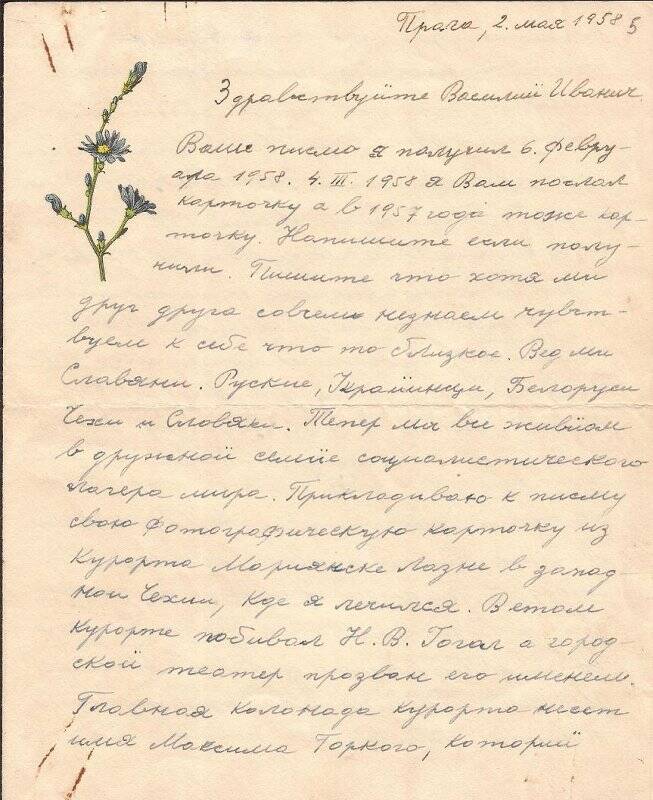 Прага, 2. мая 1958 5
Здравствуйте Василий Иванич.
Ваше писмо я получил 6. февру-
ара 1958. 4. III. 1958 я Вам послал
карточку а в 1957 года тоже кар-
точку. Напишите если полу-
чили. Пишите что хотя ми
друг друга совсем незнаем чувст-
вуем к себе что то близкое. Вед ми
Славяни. Руские, Украинци, Белоруси
Чехи и Словяки. Тепер ми все живйом
в дружной семйе социалистического
лагера мира. Прикладиваю к писму
свою фотографическую карточку из
курорта Мариянске Лазне в запад-
ной Чехии, где я лечился. В етом
курорте побивал Н. В. Гогал а город-
ской театер прозван его именем.
Главная колонада курорта несет
имя Максима Горкого, которий